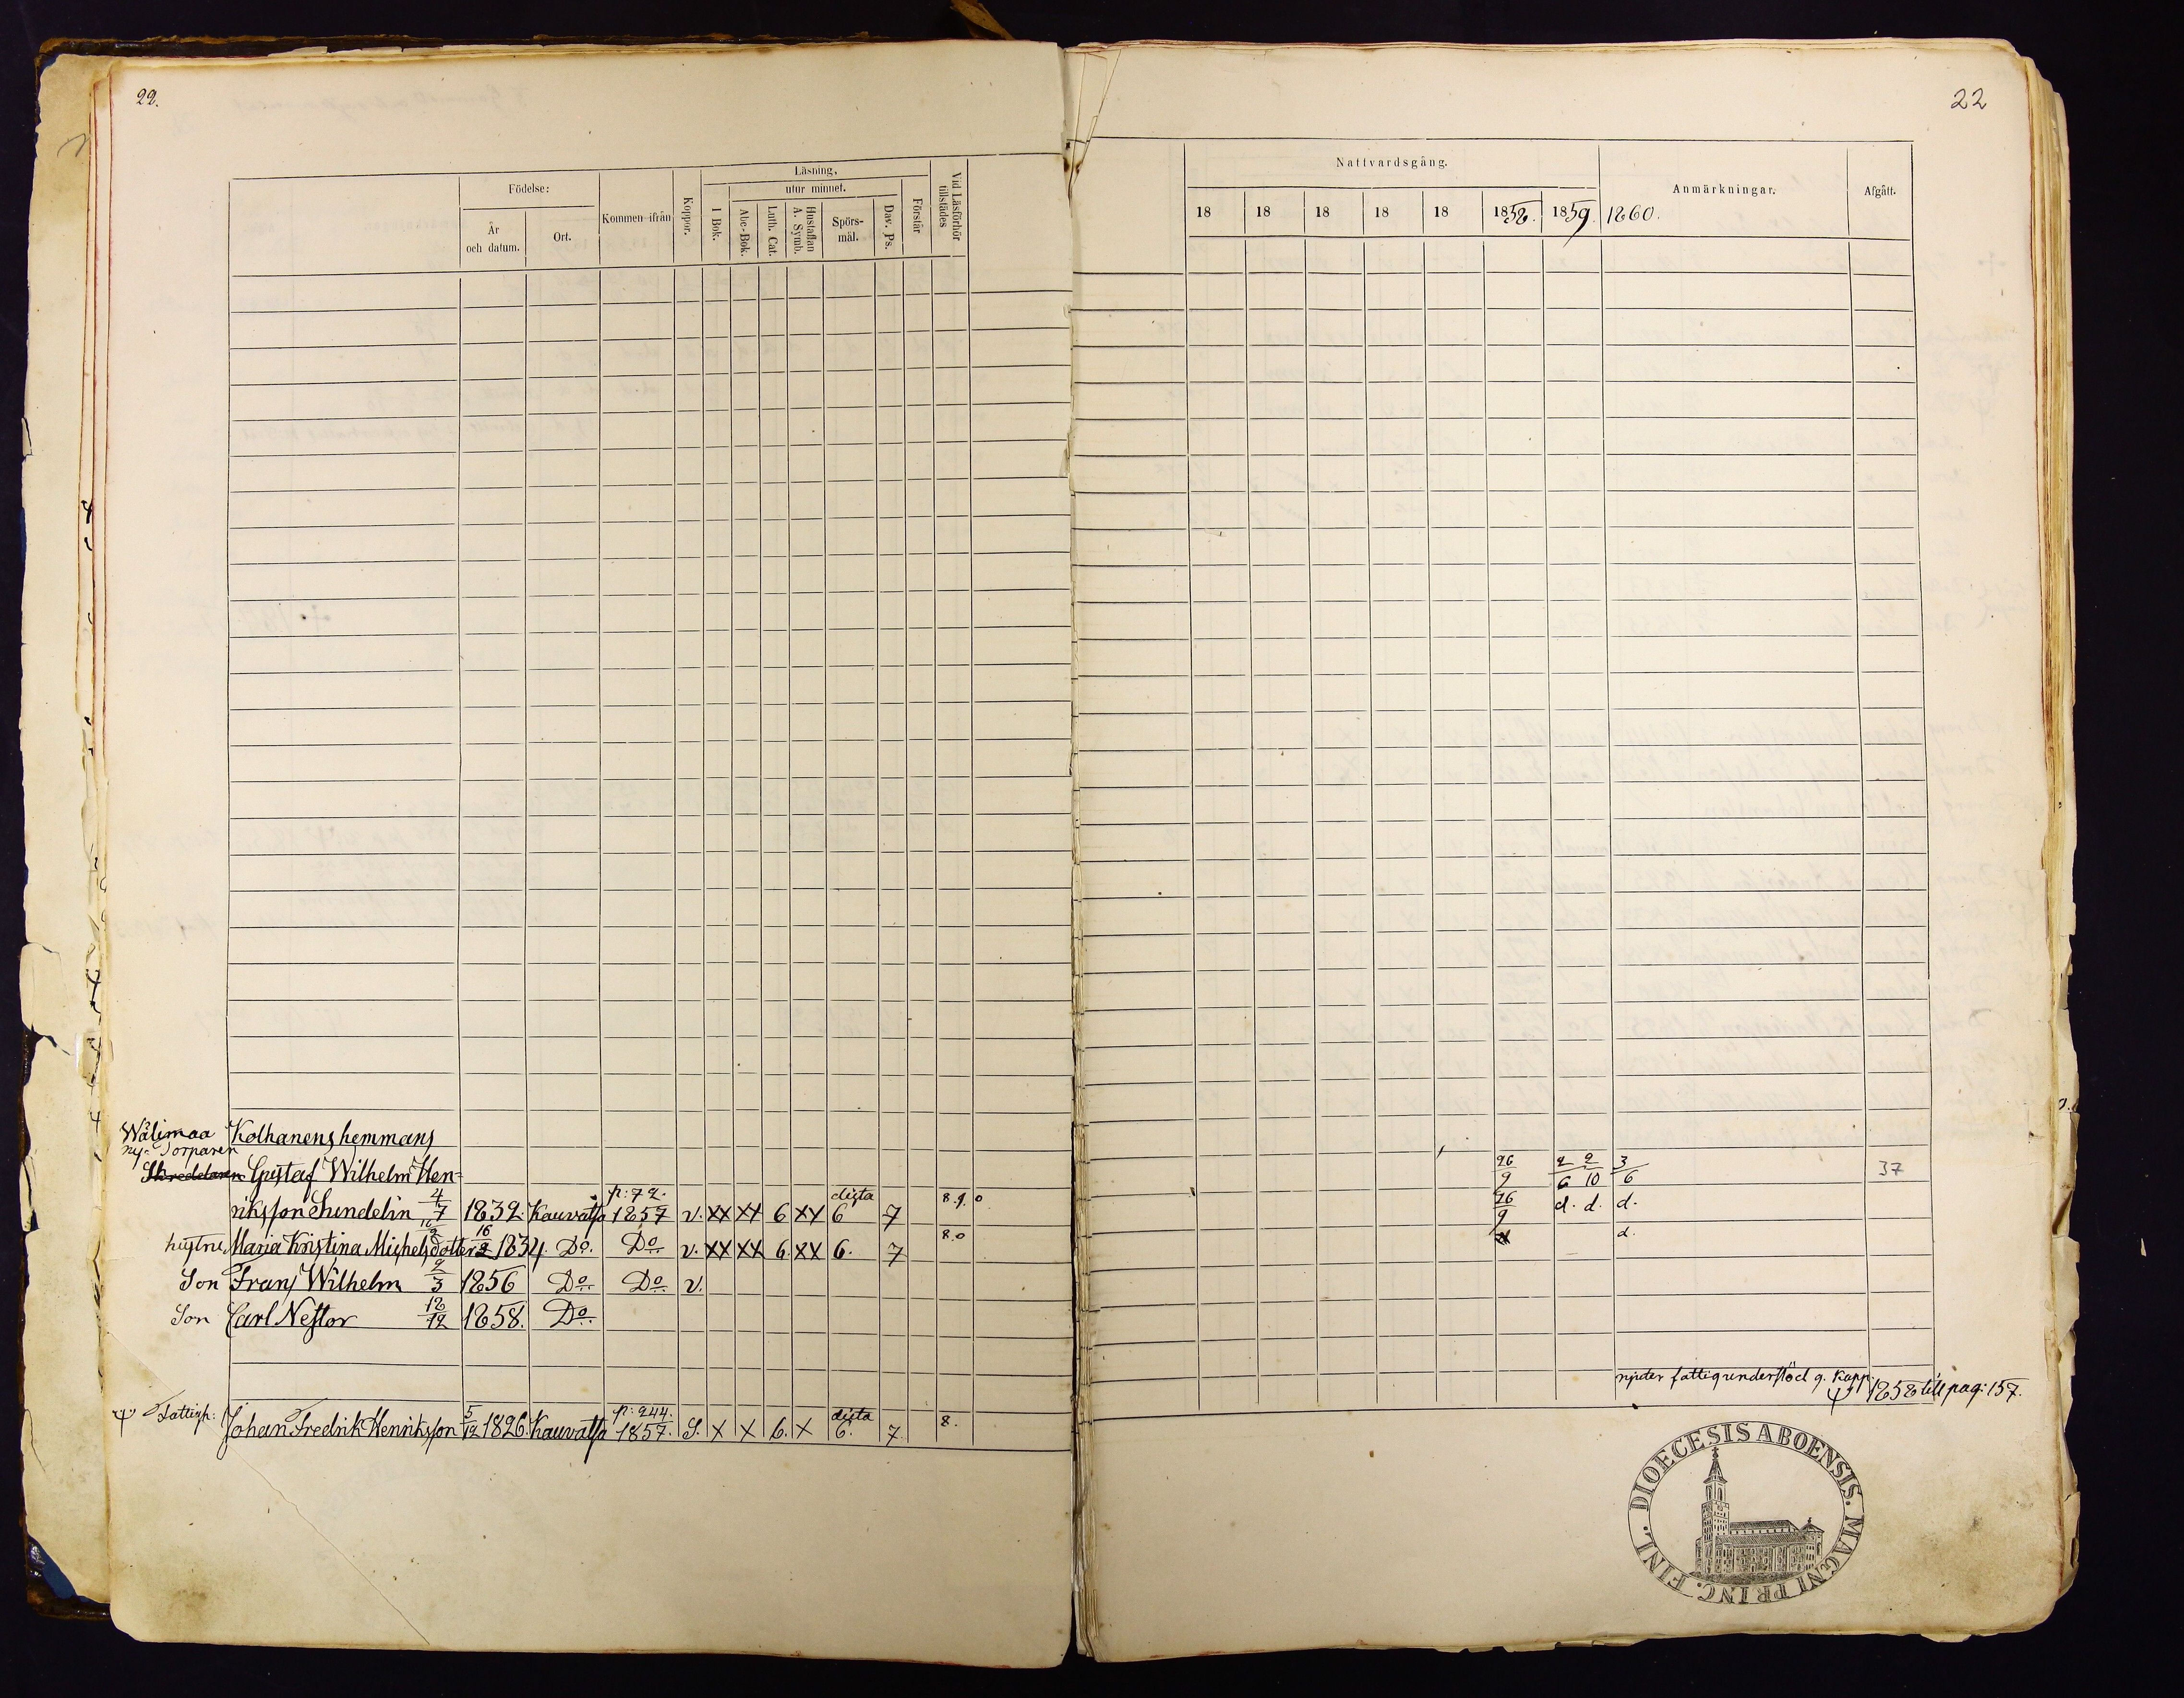 22.
22
Födelse:
År
och datum.
Ort.
Kommen ifrån
Koppor.
Läsning,
utur minnet.
I Bok.
Abc-Bok.
Luth. Cat.
Hustaflan
A. Symb.
Spörs-
mål.
Dav. Ps.
Förstår
Vid Läsförhör
tillstädes
Nattvardsgång.
18 18 18 18 18 1858. 1859. 1860.
Anmärkningar.
Afgått.
Wälimaa Kolhanens hemmans
ny-Torparen
Skreddaren Gustaf Wilhelm Hen- 26/9 2/6 2/10 3/6 37
riksson Sundelin 4/7 1832. Kauvatsa p: 72. 1857 v. XX XX 6 XX dista 6 7 8.9.0 26/9 d. d. d.
hustru Maria Kristina Michelsdotter 16/2 1834. Do. Do. v. XX XX 6. XX 6. 7 8.0 d.
Son Frans Wilhelm 2/3 1856 Do. Do. v.
Son Carl Nestor 12/12 1858. Do.
Fattigh: Johan Fredrik Henriksson 5/12 1826. Kauvatsa p: 244. 1857. S. X X 6. X dista 6. 7. 8.
njuter fattigunderstöd 9. Kapp.
1858 till pag: 157.
DIOECESIS ABOENSIS. MAGNI PRINC. FINL.